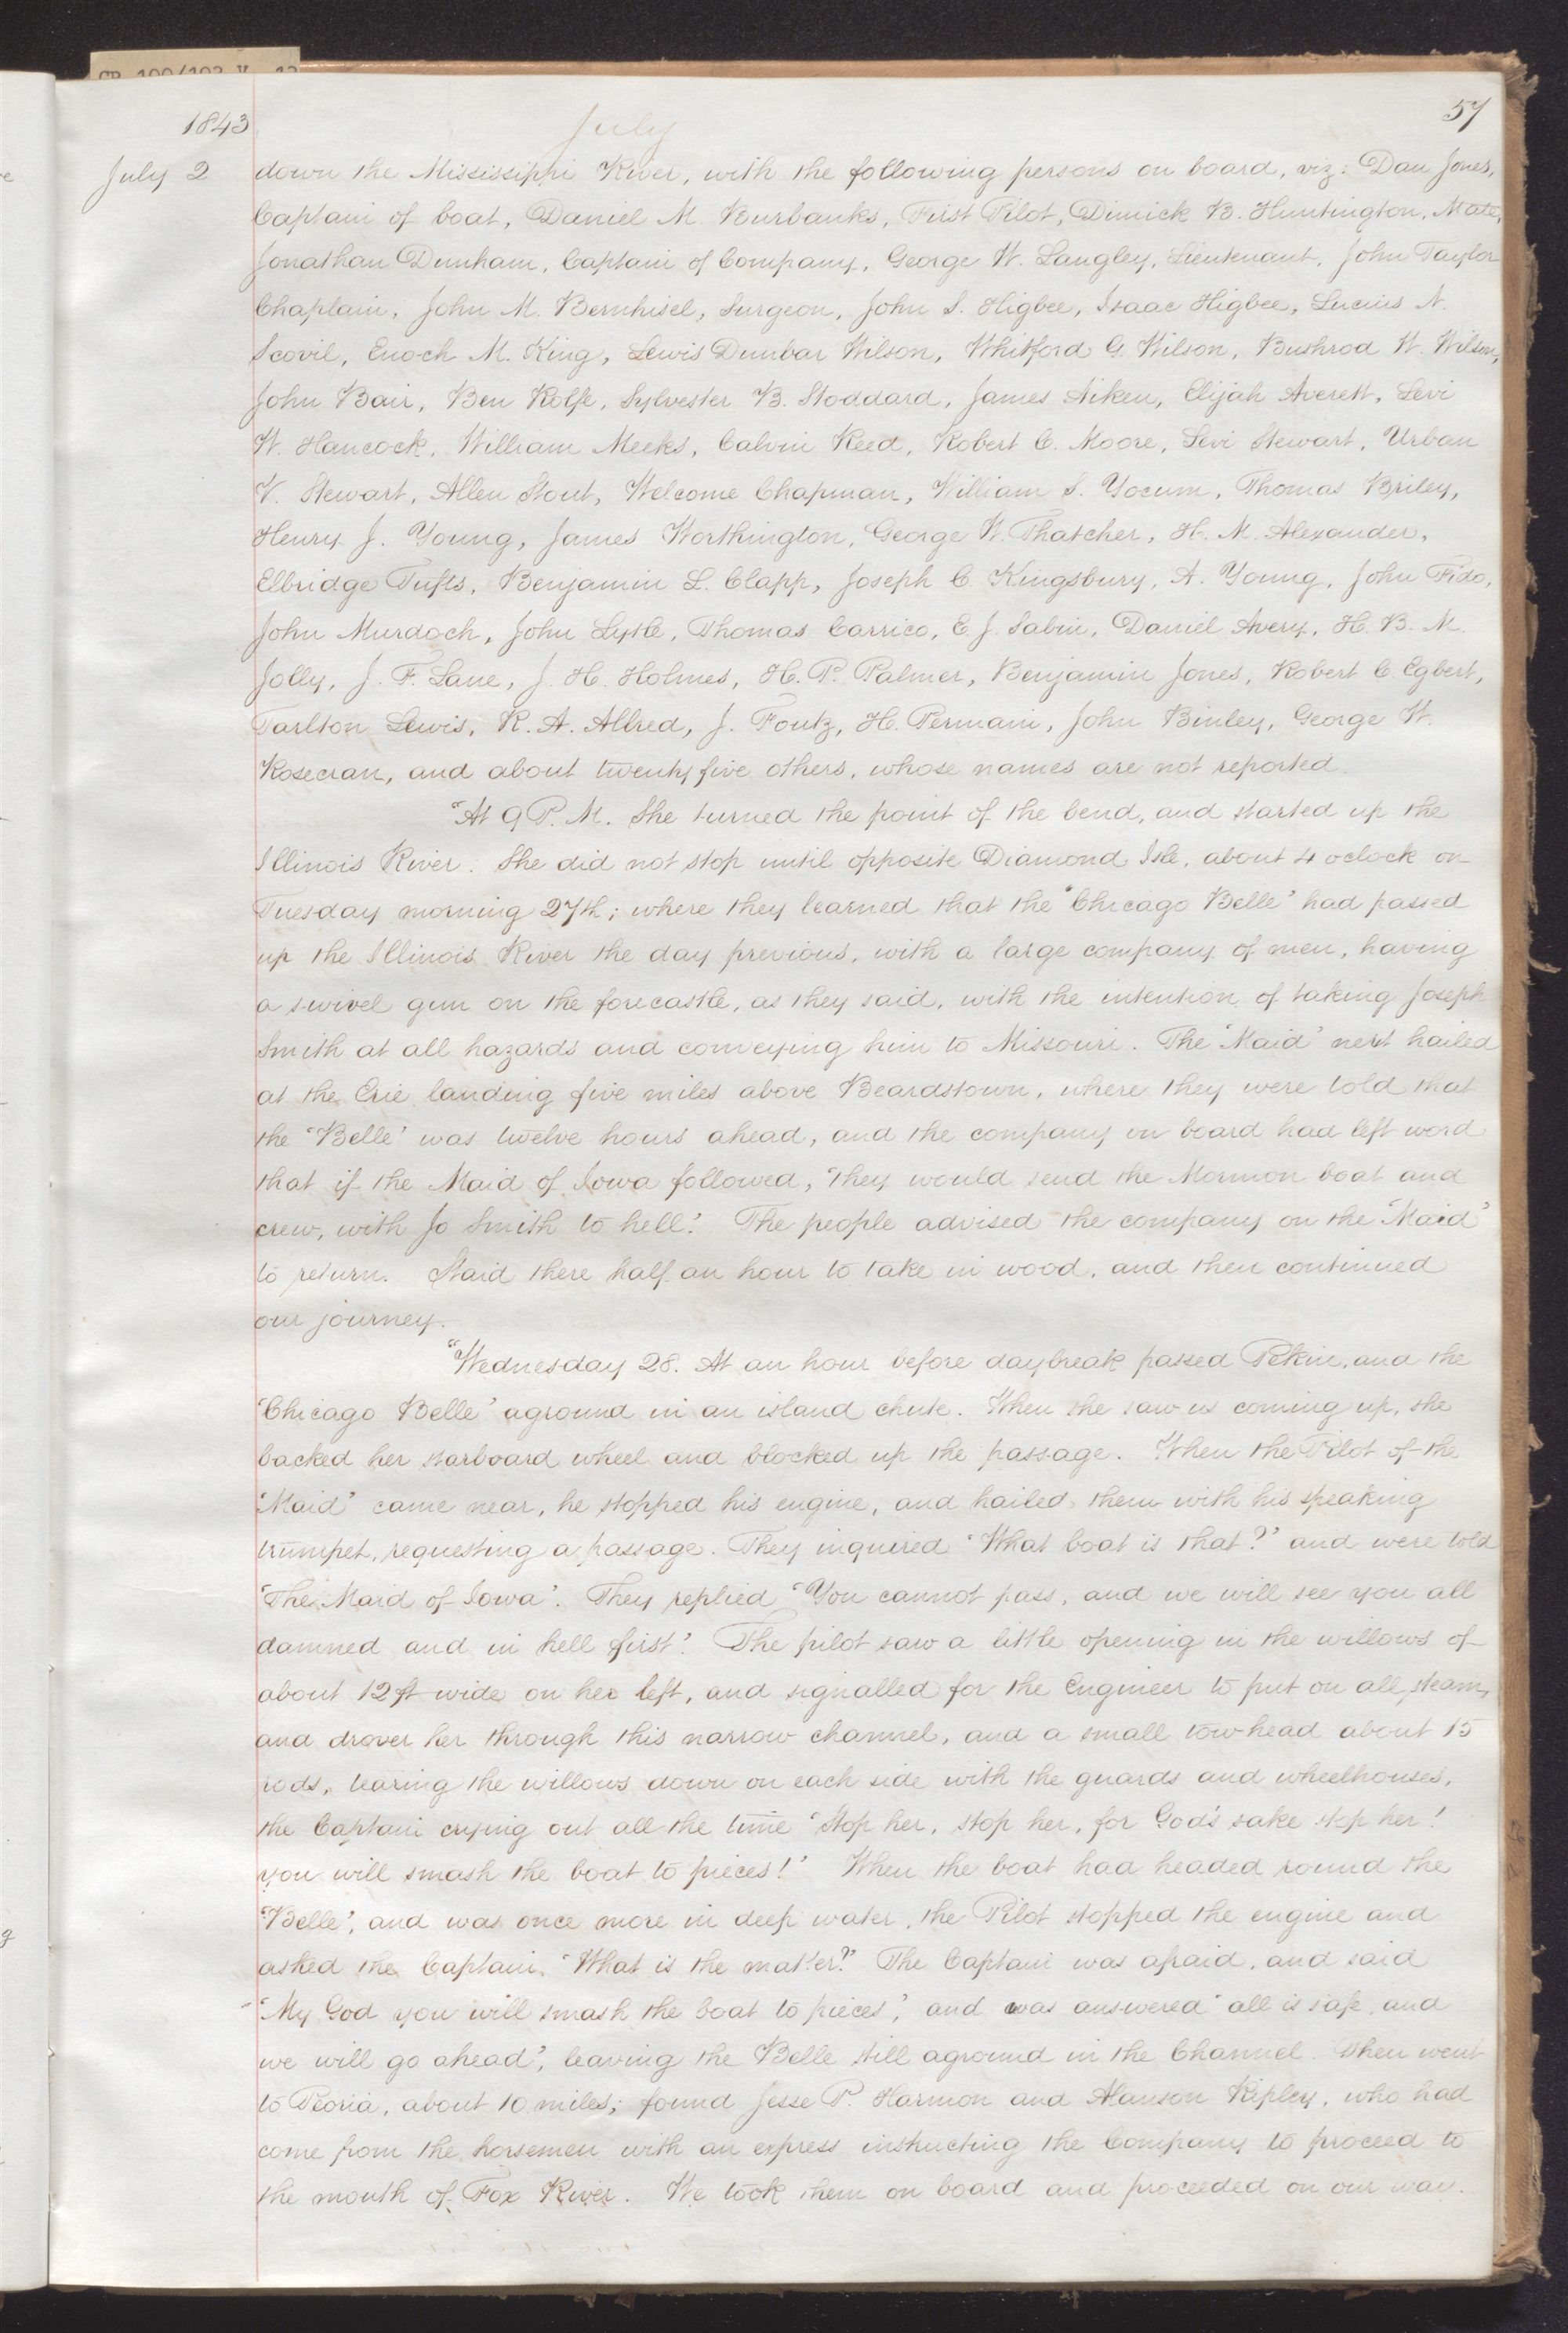 1843
July
57
July 2
down the Mississippi River, with the following persons on board, viz: Dan Jones,
Captain of boat, Daniel M. Burbanks, First Pilot, Dimick B. Huntington, Mate,
Jonathan Dunham, Captain of Company, George W. Langley, Lieutenant, John Taylor
Chaplain, John M. Bernhisel, Surgeon, John S. Higbee, Isaac Higbee, Lucius N.
Scovil, Enoch M. King, Lewis Dunbar Wilson, Whitford G. Wilson, Bushrod W. Wilson,
John Bair, Ben Rolfe, Sylvester B. Stoddard, James Aiken, Elijah Averett, Levi
W. Hancock, William Meeks, Calvin Reed, Robert C. Moore, Levi Stewart, Urban
V. Stewart, Allen Stout, Welcome Chapman, William S. Yocum, Thomas Briley,
Henry J. Young, James Worthington, George W. Thatcher, H. M. Alexander,
Elbridge Tufts, Benjamin L. Clapp, Joseph C. Kingsbury, A. Young, John Fido,
John Murdoch, John Lytle, Thomas Carrico, E. J. Sabin, Daniel Avery, H. B. M.
Jolly, J. F. Lane, J. H. Holmes, H. P. Palmer, Benjamin Jones, Robert C. Egbert,
Tarlton Lewis, R. A. Allred, J. Foutz, H. Permain, John Binley, George W.
Rosecran, and about twenty five others, whose names are not reported.
"At 9 P. M. She turned the point of the bend, and started up the
Illinois River. She did not stop until opposite Diamond Isle, about 4 oclock on
Tuesday morning 27th; where they learned that the 'Chicago Belle' had passed
up the Illinois River the day previous, with a large company of men, having
a swivel gun on the forecastle, as they said, with the intention of taking Joseph
Smith at all hazards and conveying him to Missouri. The 'Maid' next hailed
at the Erie landing five miles above Beardstown, where they were told that
the 'Belle' was twelve hours ahead, and the company on board had left word
that if the Maid of Iowa followed, 'they would send the Mormon boat and
crew, with Jo Smith to hell.' The people advised the company on the 'Maid'
to return. Staid there half an hour to take in wood, and then continued
our journey.
"Wednesday 28. At an hour before daybreak passed Pekin, and the
'Chicago Belle' aground in an island chute. When she saw us coming up, she
backed her starboard wheel and blocked up the passage. When the Pilot of the
'Maid' came near, he stopped his engine, and hailed them with his speaking
trumpet, requesting a passage. They inquired 'What boat is that?' and were told
'The Maid of Iowa'. They replied 'You cannot pass, and we will see you all
damned and in hell first'. The pilot saw a little opening in the willows of
about 12 ft wide on her left, and signalled for the Engineer to put on all steam,
and drover her through this narrow channel, and a small tow-head about 15
rods, tearing the willows down on each side with the guards and wheelhouses,
the Captain crying out all the time 'Stop her, stop her, for God's sake stop her!
you will smash the boat to pieces!' When the boat had headed round the
'Belle', and was once more in deep water, the Pilot stopped the engine and
asked the Captain, 'What is the matter?' The Captain was afraid, and said
'My God you will smash the boat to pieces', and was answered 'all is safe, and
we will go ahead', leaving the Belle still aground in the Channel. Then went
to Peoria, about 10 miles; found Jesse P. Harmon and Alanson Ripley, who had
come from the horsemen with an express instructing the Company to proceed to
the mouth of Fox River. We took them on board and proceeded on our way.